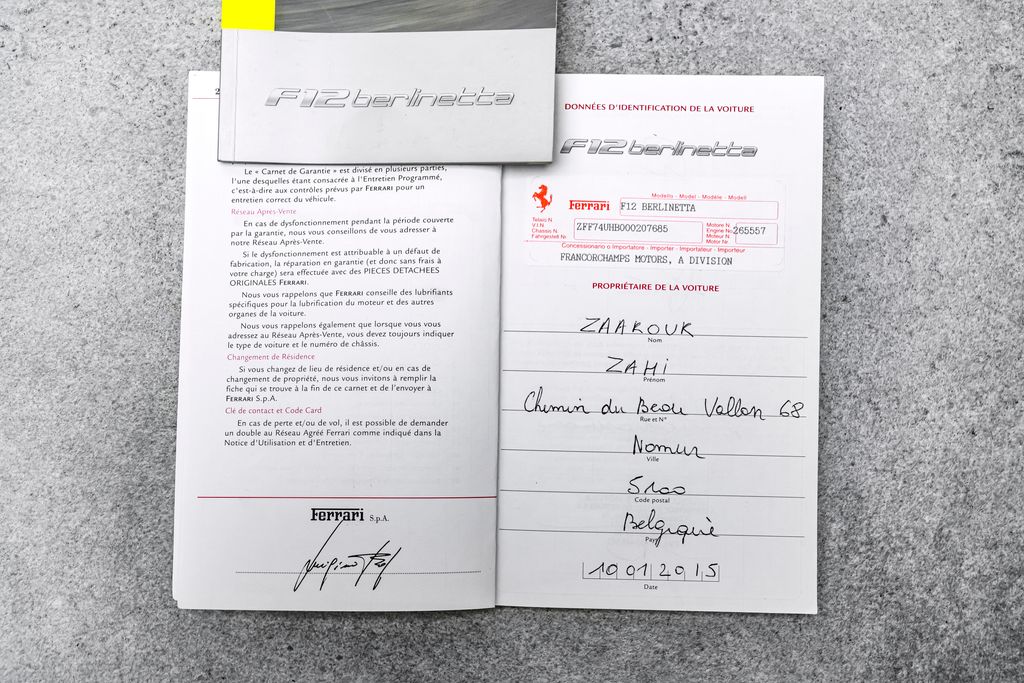 F12 berlinetta
2
Le « Carnet de Garantie » est divisé en plusieurs parties,
l'une desquelles étant consacrée à l'Entretien Programmé,
c'est-à-dire aux contrôles prévus par FERRARI pour un
entretien correct du véhicule.
Réseau Après-Vente
En cas de dysfonctionnement pendant la période couverte
par la garantie, nous vous conseillons de vous adresser à
notre Réseau Après-Vente.
Si le dysfonctionnement est attribuable à un défaut de
fabrication, la réparation en garantie (et donc sans frais à
votre charge) sera effectuée avec des PIECES DETACHEES
ORIGINALES FERRARI.
Nous vous rappelons que FERRARI conseille des lubrifiants
spécifiques pour la lubrification du moteur et des autres
organes de la voiture.
Nous vous rappelons également que lorsque vous vous
adressez au Réseau Après-Vente, vous devez toujours indiquer
le type de voiture et le numéro de châssis.
Changement de Résidence
Si vous changez de lieu de résidence et/ou en cas de
changement de propriété, nous vous invitons à remplir la
fiche qui se trouve à la fin de ce carnet et de l'envoyer à
FERRARI S.p.A.
Clé de contact et Code Card
En cas de perte et/ou de vol, il est possible de demander
un double au Réseau Agréé Ferrari comme indiqué dans la
Notice d'Utilisation et d'Entretien.
Ferrari S.p.A.
DONNÉES D'IDENTIFICATION DE LA VOITURE
F12 berlinetta
Modello - Model - Modèle - Modell
Ferrari F12 BERLINETTA
Telaio N.
V.I.N.
Chassis N.
Fahrgestell Nr.
ZFF74UHB000207685
Motore N.
Engine No.
Moteur N.
Motor Nr.
265557
Concessionario o Importatore - Importer - Importateur - Importeur
FRANCORCHAMPS MOTORS, A DIVISION
PROPRIÉTAIRE DE LA VOITURE
ZAAROUR
Nom
ZAHi
Prénom
Chemin du Beau Vallon 68
Rue et N°
Namur
Ville
5100
Code postal
Belgique
Pays
10 01 2015
Date